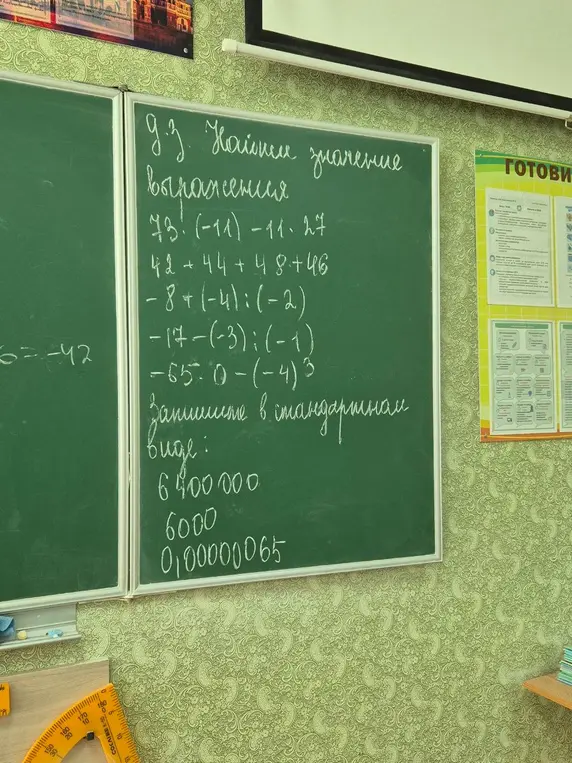 ГОТОВИ
6 = -42
Д.З. Найти значение
выражения
73·(-11) -11·27
42 + 44 + 48 + 46
-8 + (-4) : (-2)
-17 -(-3) : (-1)
-65·0 -(-4)³
Запишите в стандартном
виде:
6400000
6000
0,00000065